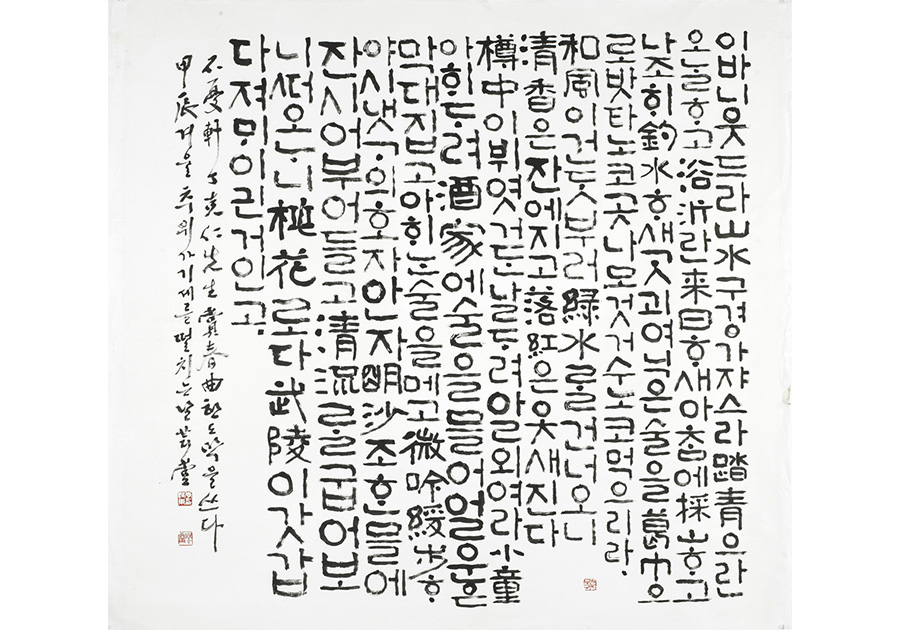 이바니웃드라山水구경가쟈스라踏青으란
오ᄂᆞᆯᄒᆞ고浴沂란来日ᄒᆞ새아ᄎᆞᆷ에採山ᄒᆞ고
나조ᄒᆡ釣水ᄒᆞ새ᄀᆞᆺ괴여닉은술을葛巾으
로밧타노코곳나모것거수노코먹으리라
和風이건ᄃᆞᆺ부러綠水ᄅᆞᆯ건너오니
清香은잔에지고落紅은옷새진다
樽中이뷔엿거ᄃᆞᆫ날ᄃᆞ려알외여라小童
아ᄒᆡᄃᆞ려酒家에술을믈어얼운은
막대집고아ᄒᆡᄂᆞᆫ술을메고微吟緩步ᄒᆞ
야시냇ᄀᆞ의호자안자明沙조ᄒᆞᆫ믈에
잔시어부어들고清流ᄅᆞᆯ굽어보
니ᄯᅥ오ᄂᆞ니桃花ㅣ로다武陵이갓갑
다져ᄆᆡ이긘거인고
不憂軒丁克仁先生賞春曲한도막을쓰다
甲辰겨울추위가기세를떨치는날